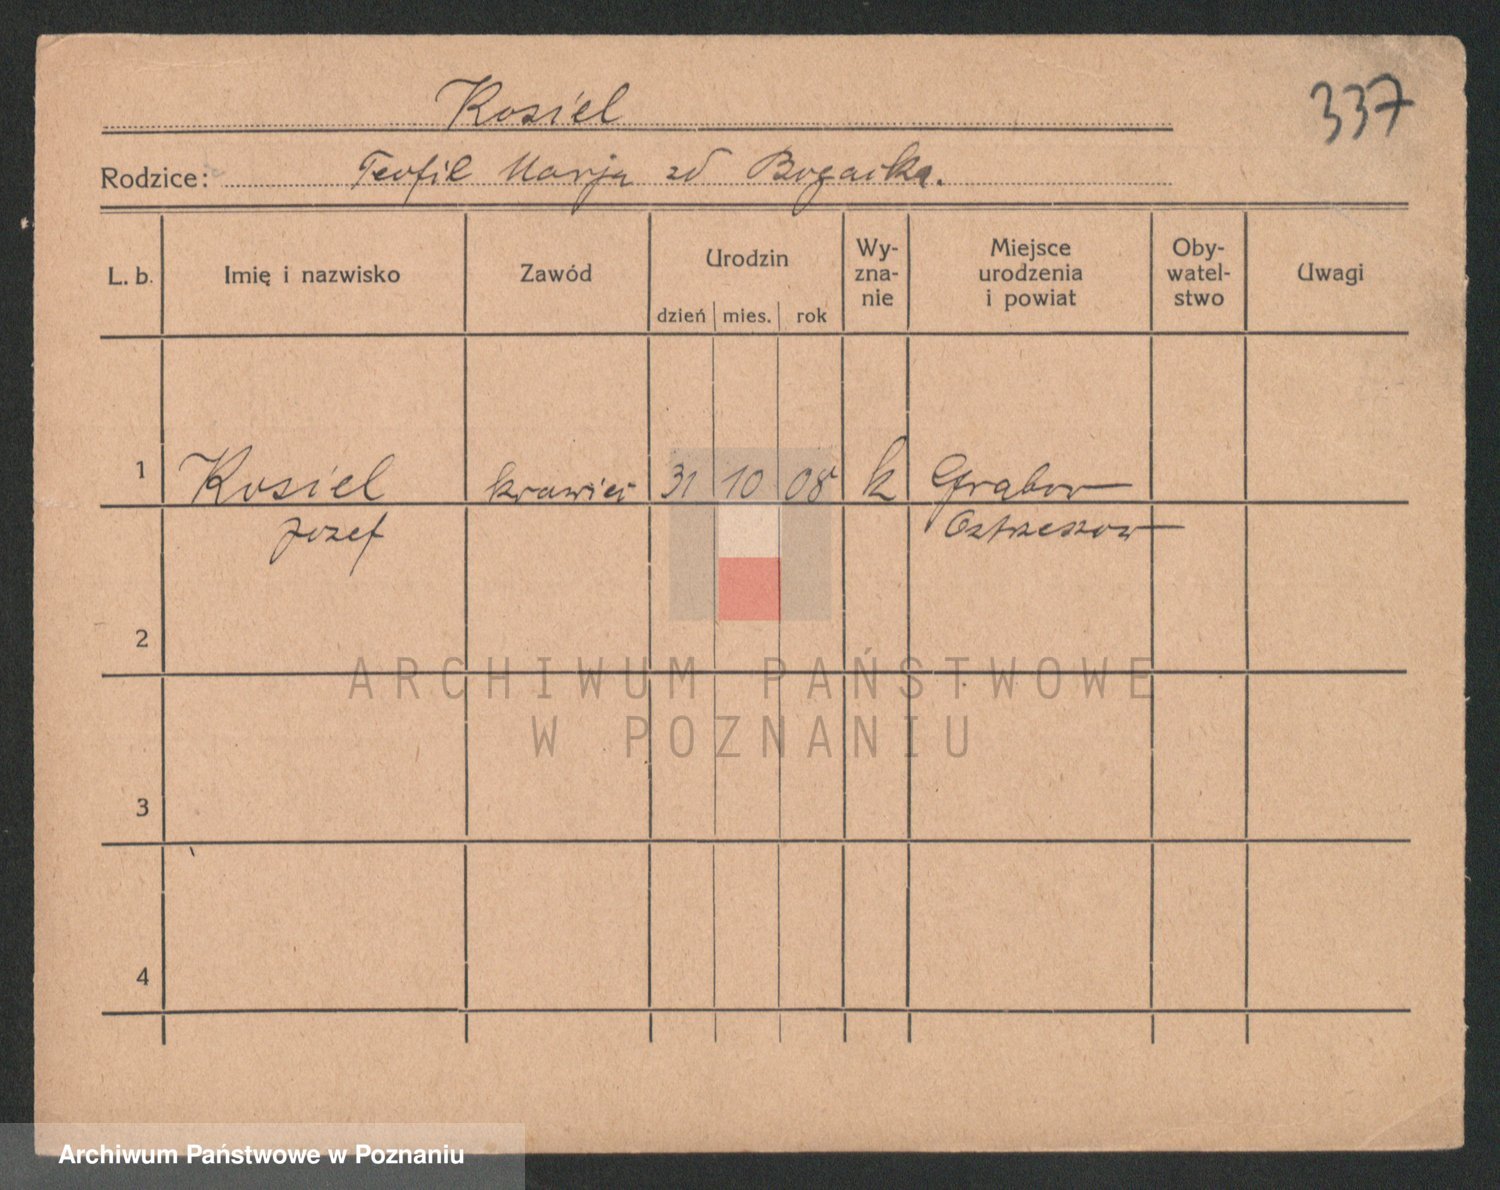 337
Kosiel
Rodzice: Teofil Marja zd Bogacka.
L. b. Imię i nazwisko Zawód Urodzin dzień mies. rok Wy-zna-nie Miejsce urodzenia i powiat Oby-watel-stwo Uwagi
1 Kosiel krawiec 31 10 08 k Grabow
Jozef Ostrzeszow
2
3
4
ARCHIWUM PAŃSTWOWE
W POZNANIU
Archiwum Państwowe w Poznaniu